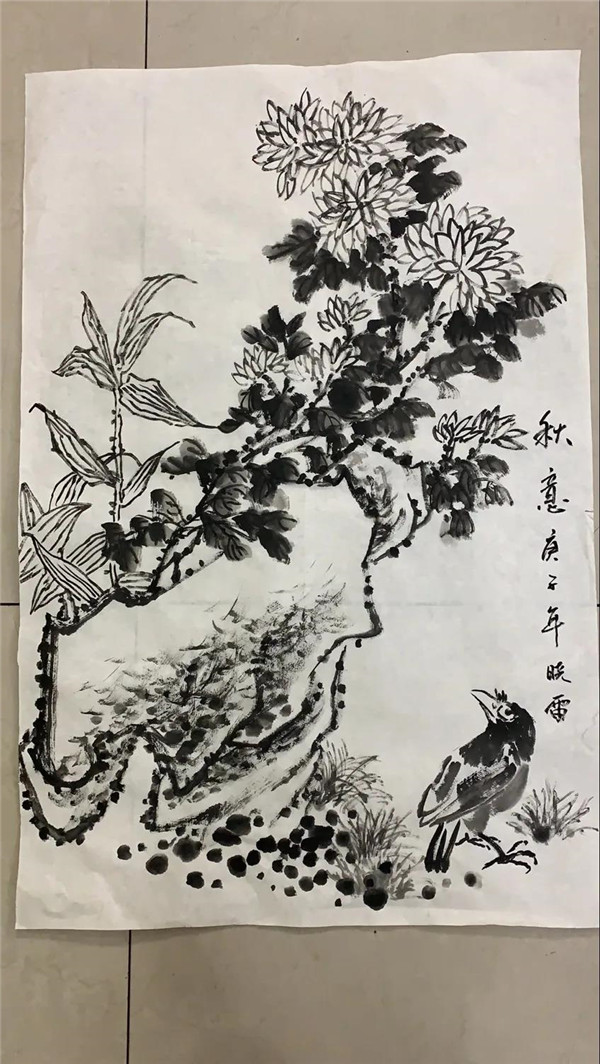 秋意庚子年晓雷